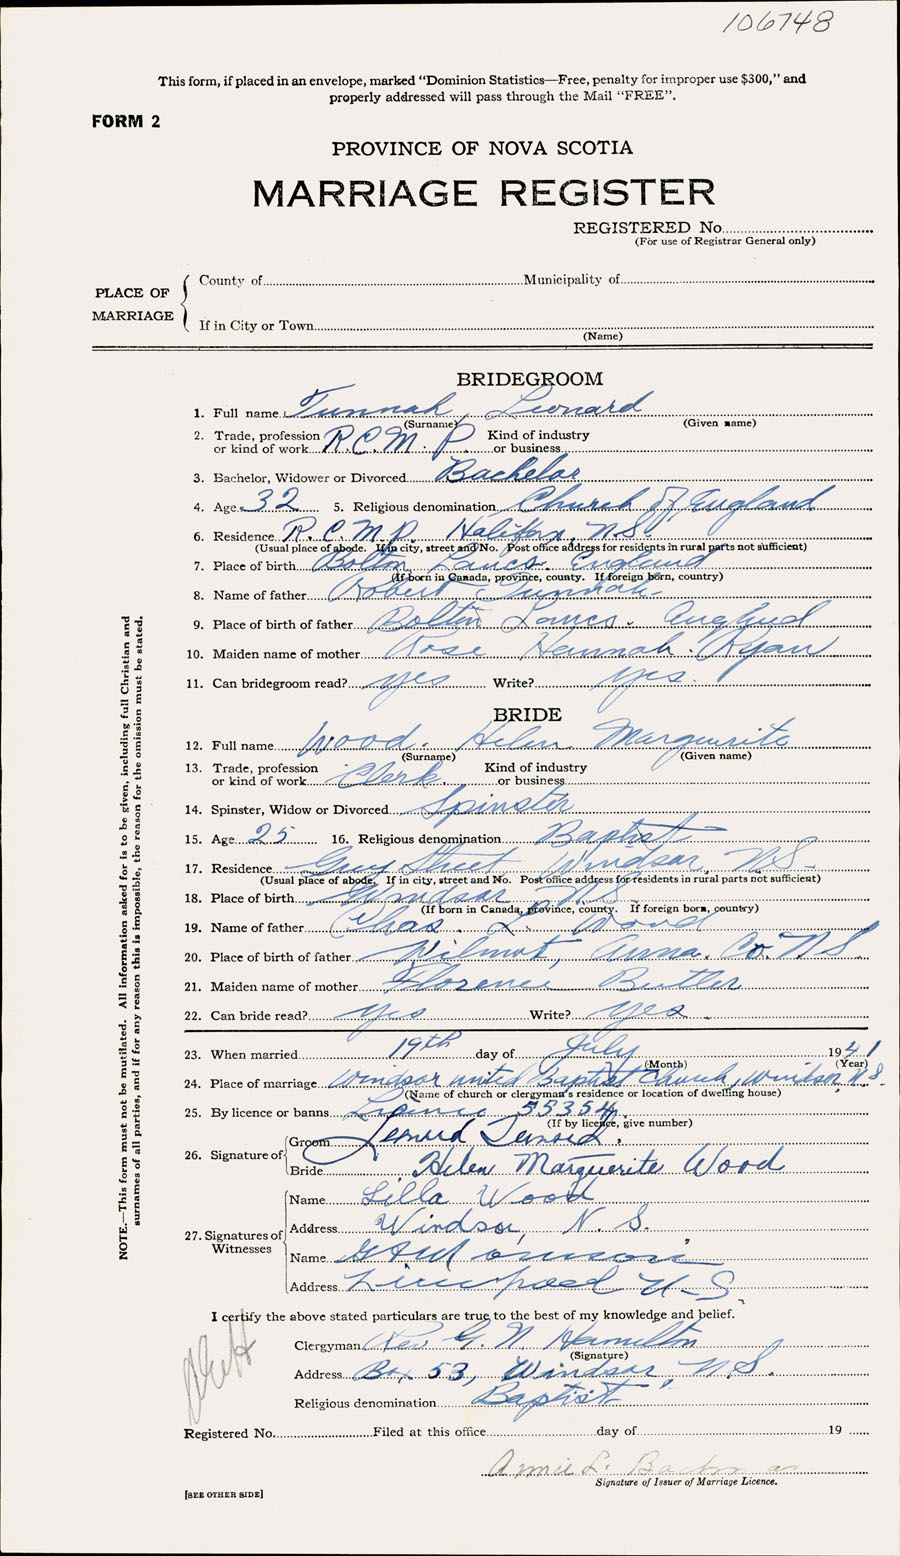 106748
This form, if placed in an envelope, marked "Dominion Statistics—Free, penalty for improper use $300," and
properly addressed will pass through the Mail "FREE".
FORM 2
PROVINCE OF NOVA SCOTIA
MARRIAGE REGISTER
REGISTERED No.
(For use of Registrar General only)
PLACE OF MARRIAGE
County of Municipality of
If in City or Town
(Name)
BRIDEGROOM
1. Full name Tunnah, Leonard
(Surname) (Given name)
2. Trade, profession or kind of work R.C.M.P. Kind of industry or business
3. Bachelor, Widower or Divorced Bachelor
4. Age 32 5. Religious denomination Church of England
6. Residence R.C.M.P. Halifax, N.S.
(Usual place of abode. If in city, street and No. Post office address for residents in rural parts not sufficient)
7. Place of birth Bolton, Lancs. England
(If born in Canada, province, county. If foreign born, country)
8. Name of father Robert Tunnah
9. Place of birth of father Bolton Lancs. England
10. Maiden name of mother Rose Hannah Ryan
11. Can bridegroom read? yes Write? yes.
BRIDE
12. Full name Wood. Helen Marguerite
(Surname) (Given name)
13. Trade, profession or kind of work Clerk Kind of industry or business
14. Spinster, Widow or Divorced Spinster
15. Age 25 16. Religious denomination Baptist
17. Residence Grey Street, Windsor, N.S.
(Usual place of abode. If in city, street and No. Post office address for residents in rural parts not sufficient)
18. Place of birth Windsor N.S.
(If born in Canada, province, county. If foreign born, country)
19. Name of father Chas. L. Wood
20. Place of birth of father Wilmot, Anna. Co. N.S.
21. Maiden name of mother Florence Butler
22. Can bride read? yes Write? yes.
23. When married 19th day of July 1941
(Month) (Year)
24. Place of marriage Windsor United Baptist Church, Windsor, N.S.
(Name of church or clergyman's residence or location of dwelling house)
25. By licence or banns Licence 55354.
(If by licence, give number)
26. Signature of Groom Leonard
Bride Helen Marguerite Wood
27. Signatures of Witnesses
Name Lilla Wood
Address Windsor, N. S.
Name
Address Liverpool N.S.
I certify the above stated particulars are true to the best of my knowledge and belief.
Clergyman Rev G. N. Hamilton
(Signature)
Address Box 53, Windsor, N.S.
Religious denomination Baptist
Registered No. Filed at this office day of 19
Annie L.
Signature of Issuer of Marriage Licence.
[SEE OTHER SIDE]
NOTE.—This form must not be mutilated. All information asked for is to be given, including full Christian and
surnames of all parties, and if for any reason this is impossible, the reason for the omission must be stated.